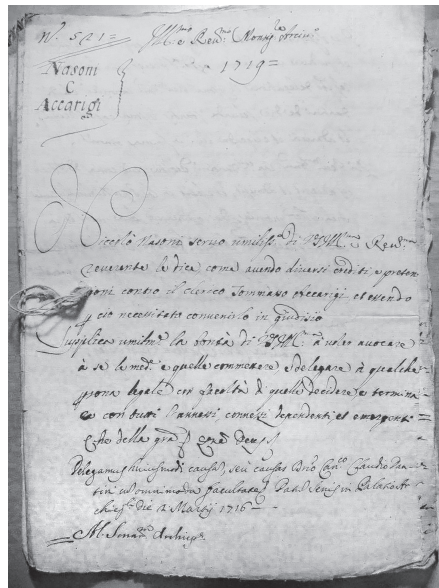 N. 521=
Ill.mo e Rev.mo Monsig.re Arciv.o
1719=
Nasoni
C
Accarigi
Niccolò Nasoni servo umiliss.o di V.S. Ill.ma e Rev.ma
reverente le dice come avendo diversi crediti, e preten
sioni contro il Clerco Tommaso Accarigi et essendo
p ciò necessitato convenirlo in giudizio
Supplica umilm.te la bontà di V.S. Ill.ma à voler avocare
à se le med.e e quelle commettere e delegare à qualche
p̱sona legale con facoltà di quelle decidere e termina
re con tutti l'annessi connessi dependenti et emergenti
Che della gra
Delegamus huiusmodi causas, seu causas D.no Can.co Claudio
tin cu omnimoda facultate Dat. Senis in Palatio A
chiep. die 2 Martij 1716
Archiep.s